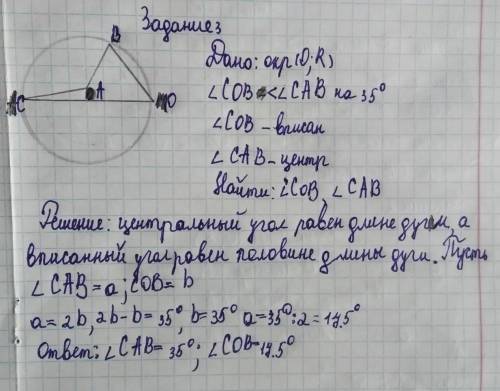 Задание3
B
Дано: окр(O;R)
∠COB < ∠CAB на 35°
AC A O
∠COB – вписан
∠CAB – центр
Найти: ∠COB, ∠CAB
Решение: центральный угол равен длине дуги, а
вписанный угол равен половине длины дуги. Пусть
∠CAB = a; COB = b
a = 2b, 2b - b = 35°, b = 35° a = 35°:2 = 17.5°
Ответ: ∠CAB = 35°; ∠COB = 17.5°